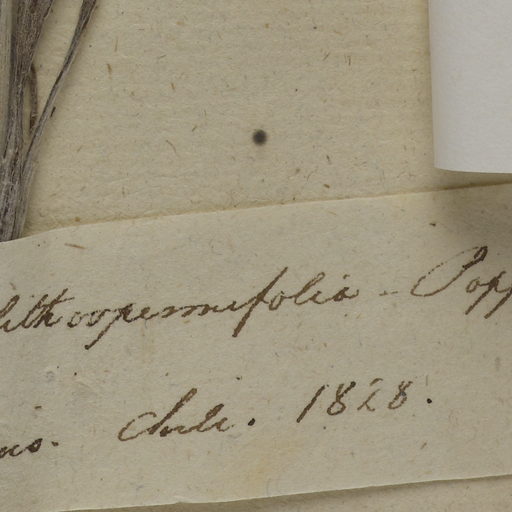 lithospermifolia - Popp
Chili. 1828.